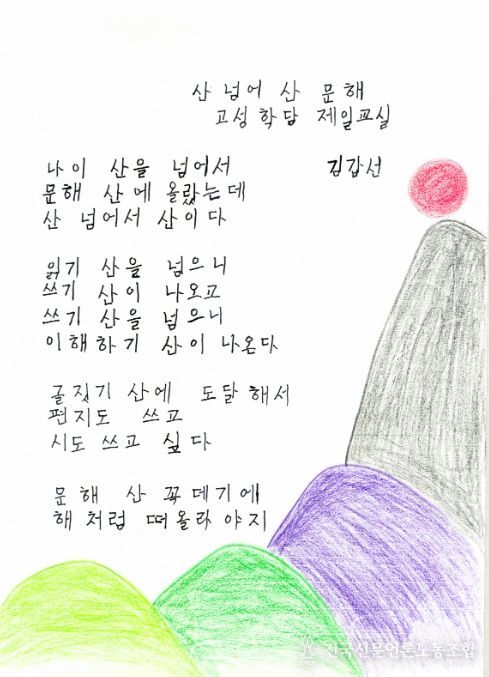 산 넘어 산 문해
고성학당 제일교실
김갑선
나이 산을 넘어서
문해 산에 올랐는데
산 넘어서 산이다
읽기 산을 넘으니
쓰기 산이 나오고
쓰기 산을 넘으니
이해하기 산이 나온다
글짓기 산에 도달해서
편지도 쓰고
시도 쓰고 싶다
문해 산 꼭데기에
해처럼 떠올라야지
전국신문언론노동조합